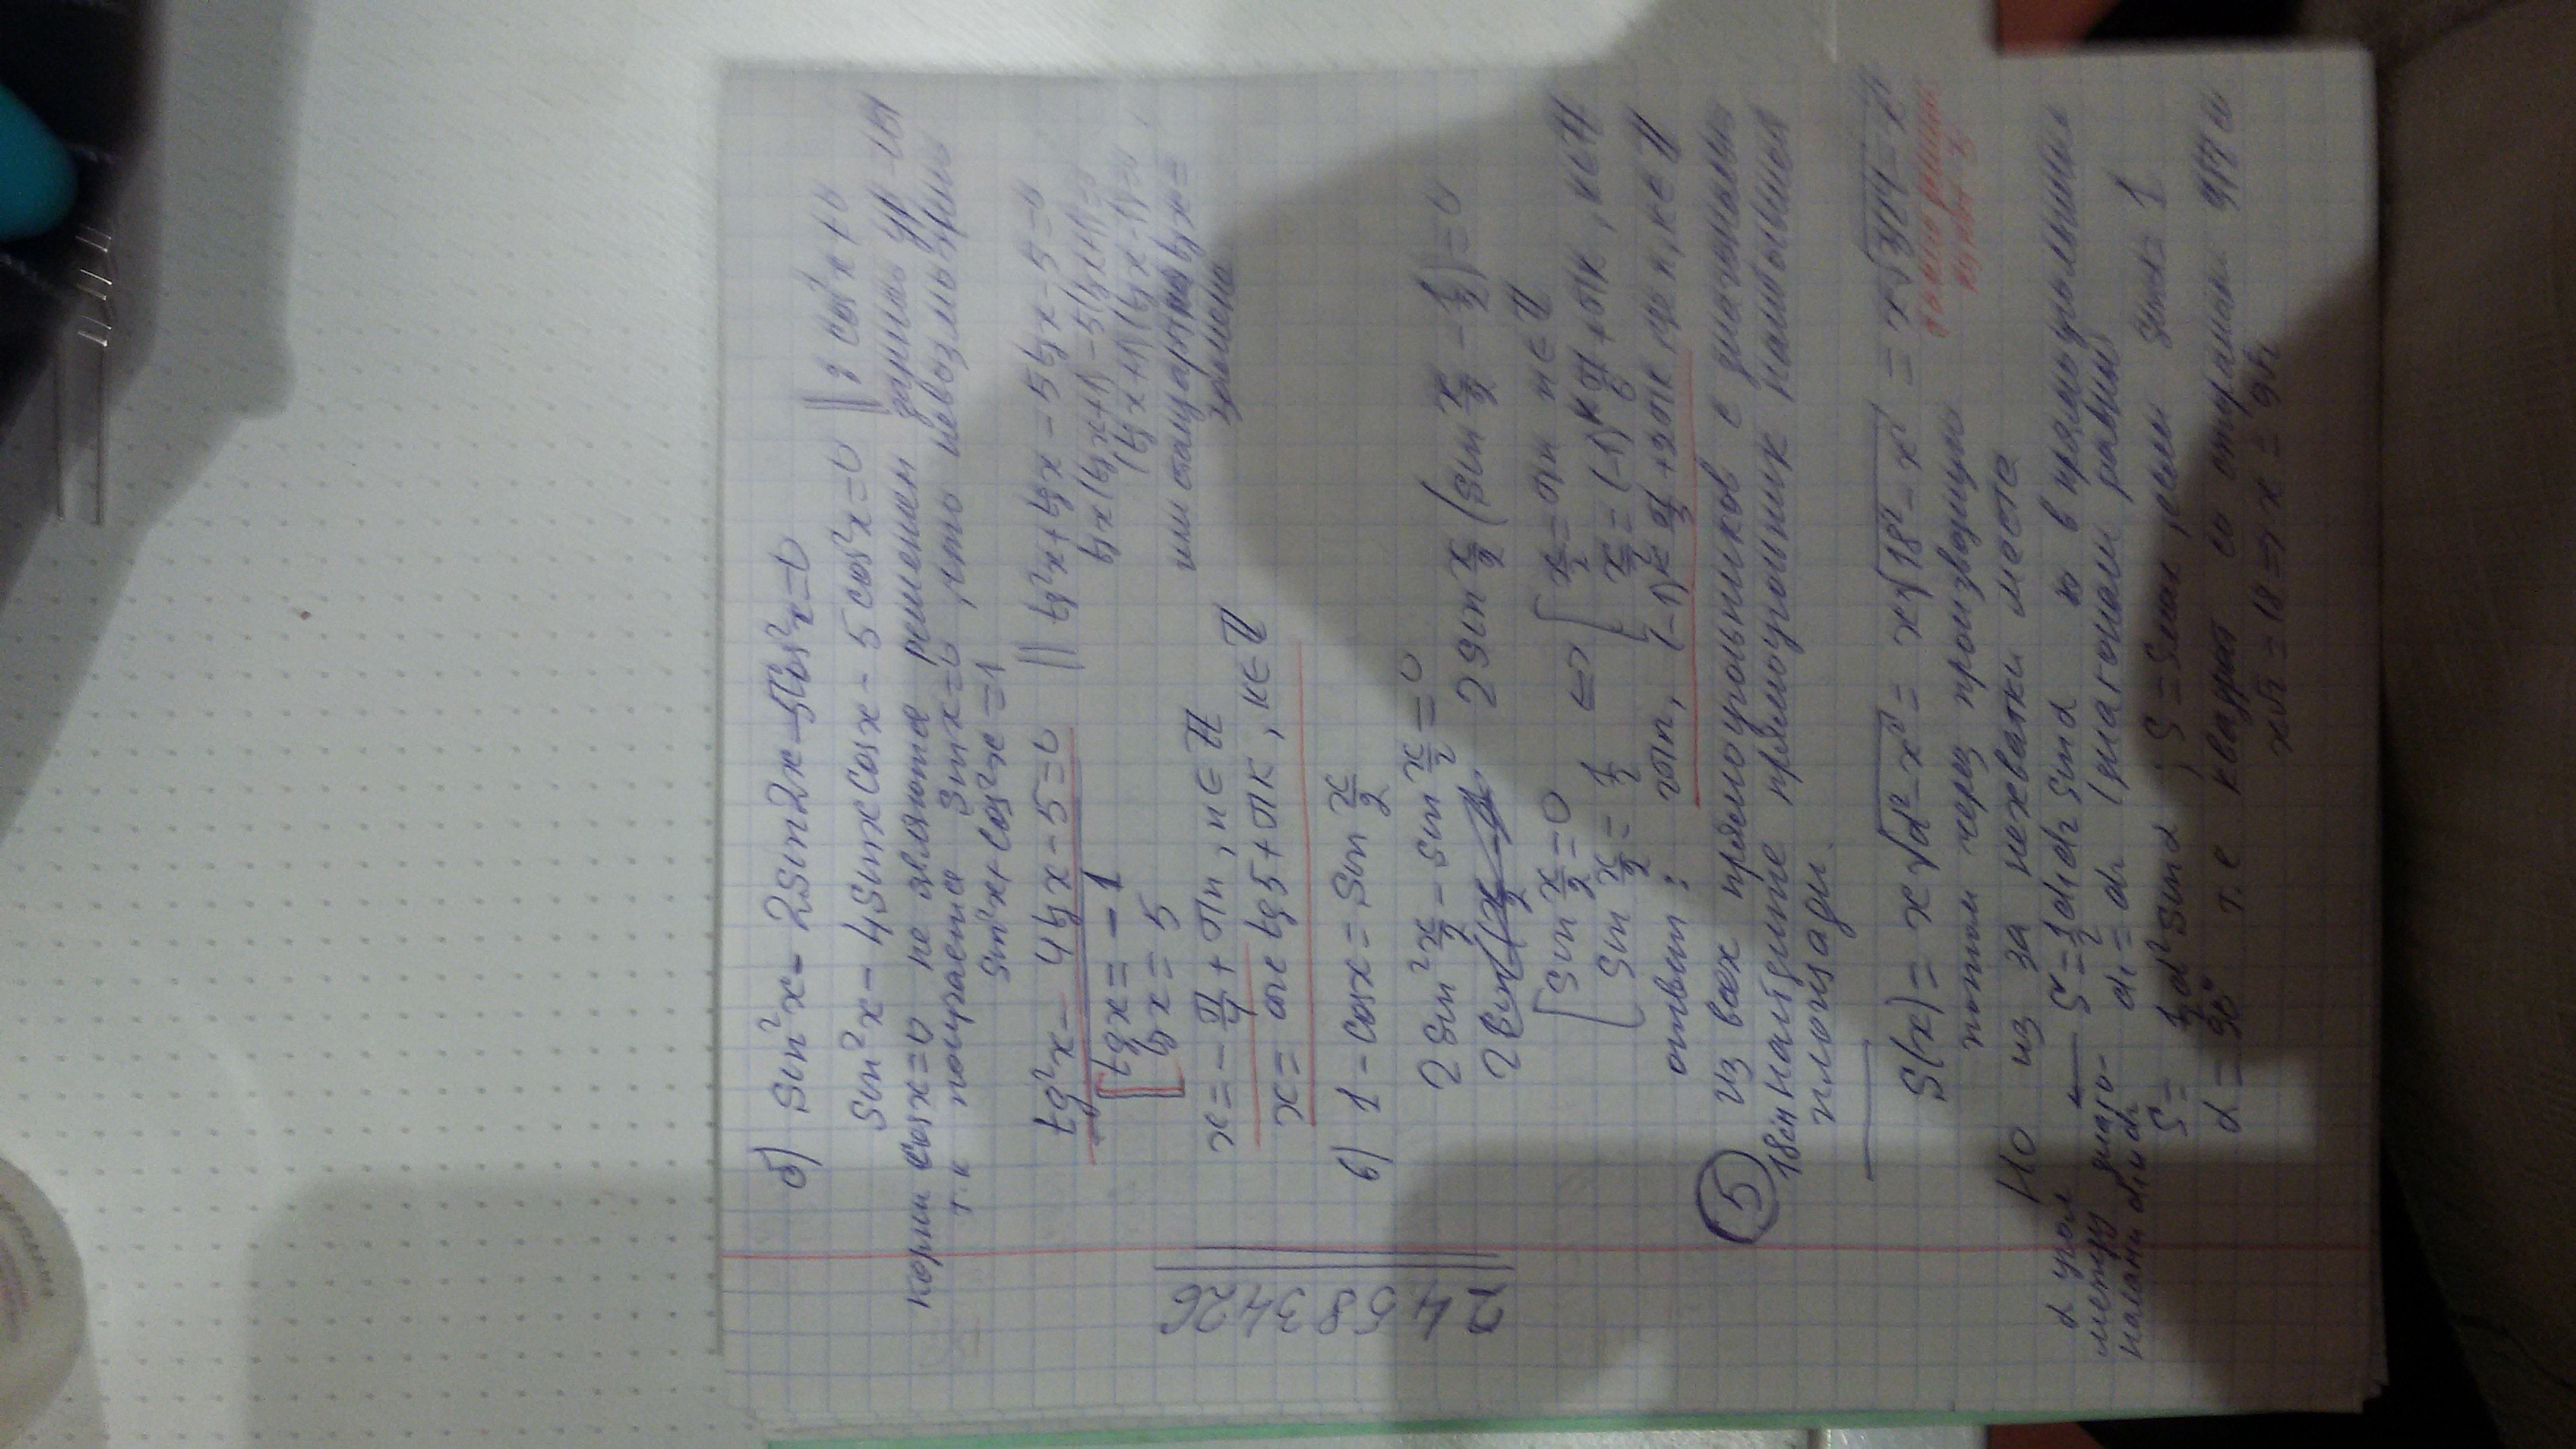 б) sin²x - 2sin2x - 5cos²x = 0
sin²x - 4sinxcosx - 5cos²x = 0 || : cos²x ≠ 0
корни cosx = 0 не являются решением данного ур-ия
т.к получается sinx = 0, что невозможно при
sin²x + cos²x = 1
tg²x - 4tgx - 5 = 0 || tg²x + tgx - 5tgx - 5 = 0
tgx(tgx+1) - 5(tgx+1) = 0
[ tgx = -1
tgx = 5
или стандартная
замена
x = -π/4 + πn, n ∈ Z
x = arctg5 + πk, k ∈ Z
в) 1 - cosx = sin x/2
2sin² x/2 - sin x/2 = 0
2sin x/2 (sin x/2 - 1/2) = 0
[ sin x/2 = 0
sin x/2 = 1/2
<=> [ x/2 = πn n ∈ Z
x/2 = (-1)^k π/6 + πk, k ∈ Z
ответ: 2πn, (-1)^k π/3 + 2πk, где n, k ∈ Z
5 из всех прямоугольников с диагональю
18см найдите прямоугольник наибольшей
площади.
S(x) = x√d²-x² = x√18²-x² = x√324-x²
потом через производную
Но из за нехватки места
α угол между диагоналями d₁ и d₂
S = 1/2 d₁d₂ sinα но в прямоугольнике
d₁ = d₂ (диагонали равны)
S = 1/2 d² sinα ; S = Smax если sinα = 1
α = 90° т.е квадрат со сторонами 9√2
x√2 = 18 => x = 9√2
2458 3426